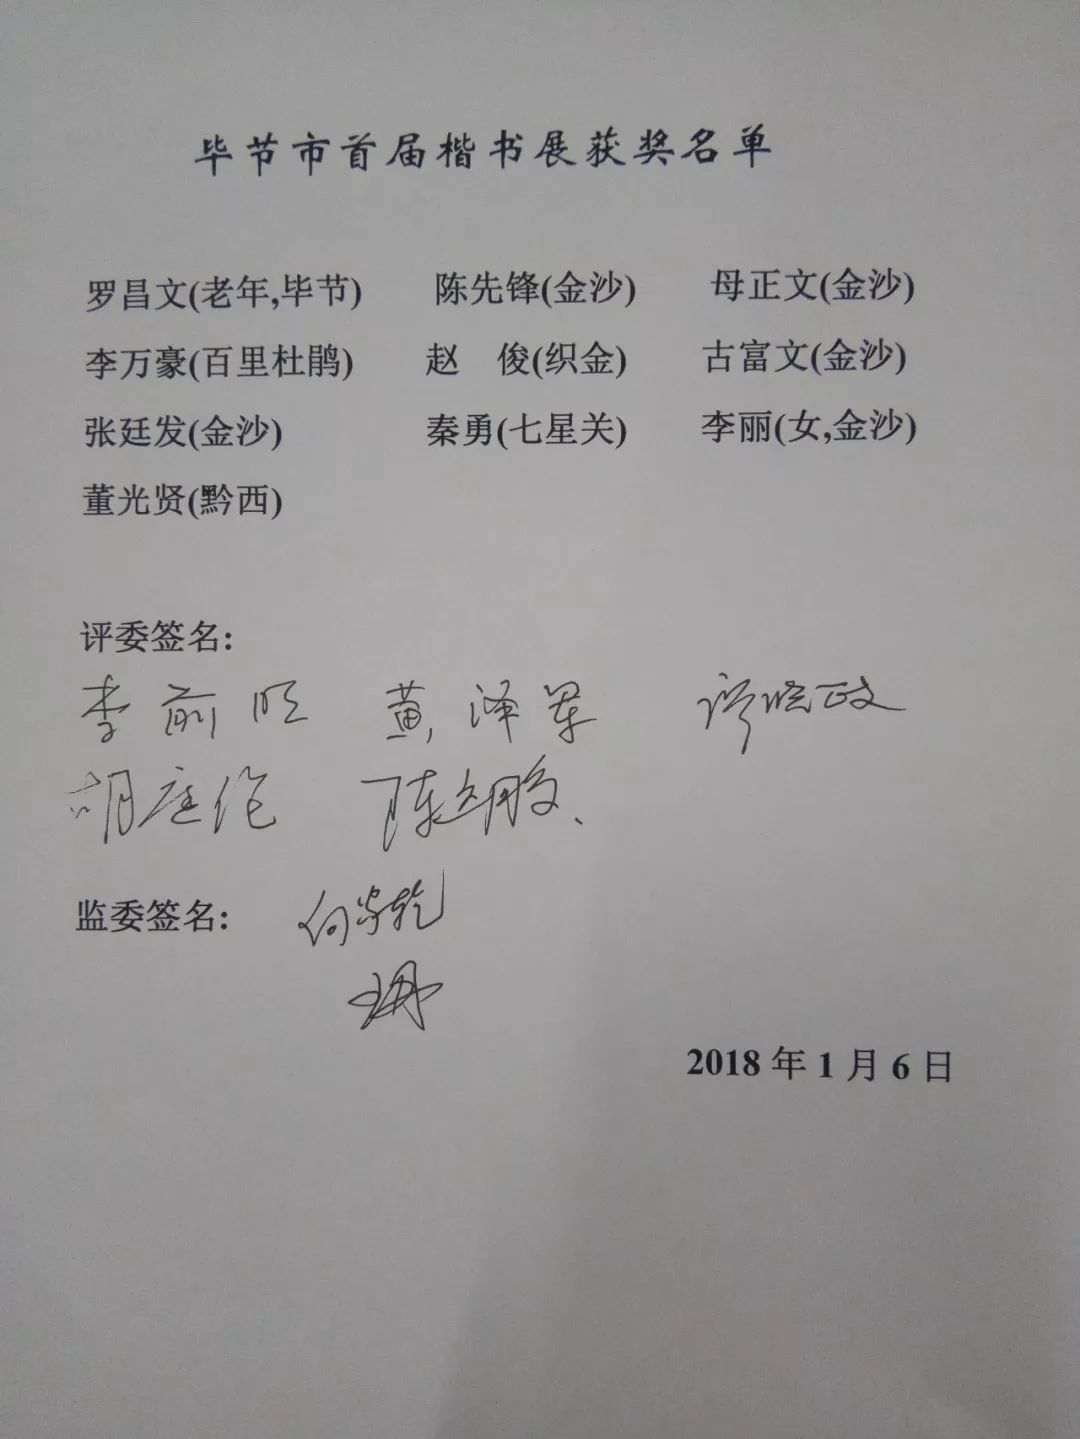 毕节市首届楷书展获奖名单
罗昌文(老年,毕节) 陈先锋(金沙) 母正文(金沙)
李万豪(百里杜鹃) 赵 俊(织金) 古富文(金沙)
张廷发(金沙) 秦勇(七星关) 李丽(女,金沙)
董光贤(黔西)
评委签名:
李前 黄泽军 廖晓政
胡庭伦 陈
监委签名: 何家乾
2018年1月6日